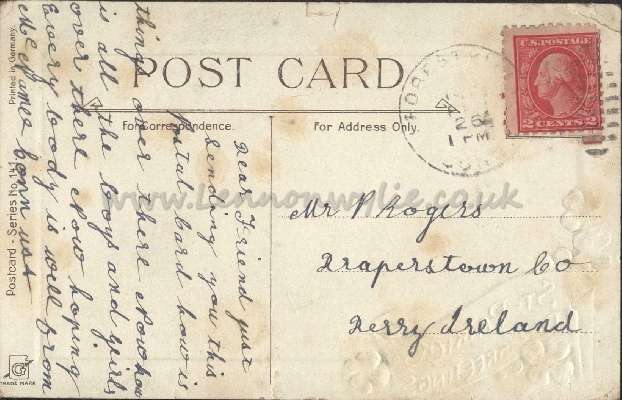 POST CARD
For Correspondence.
For Address Only.
Printed in Germany
Postcard - Series No. 141
TRADE MARK
U.S. POSTAGE
2 CENTS 2
FOREST
26
1 PM
CONN
www.Lennonwylie.co.uk
Dear Friend just
sending you this
postal card how is
things over there now how
is all the boys and girls
over there now hoping
Every body is well from
McNamee conn usa
Mr P Rogers
Draperstown Co
Derry Ireland
ST.
GREETINGS